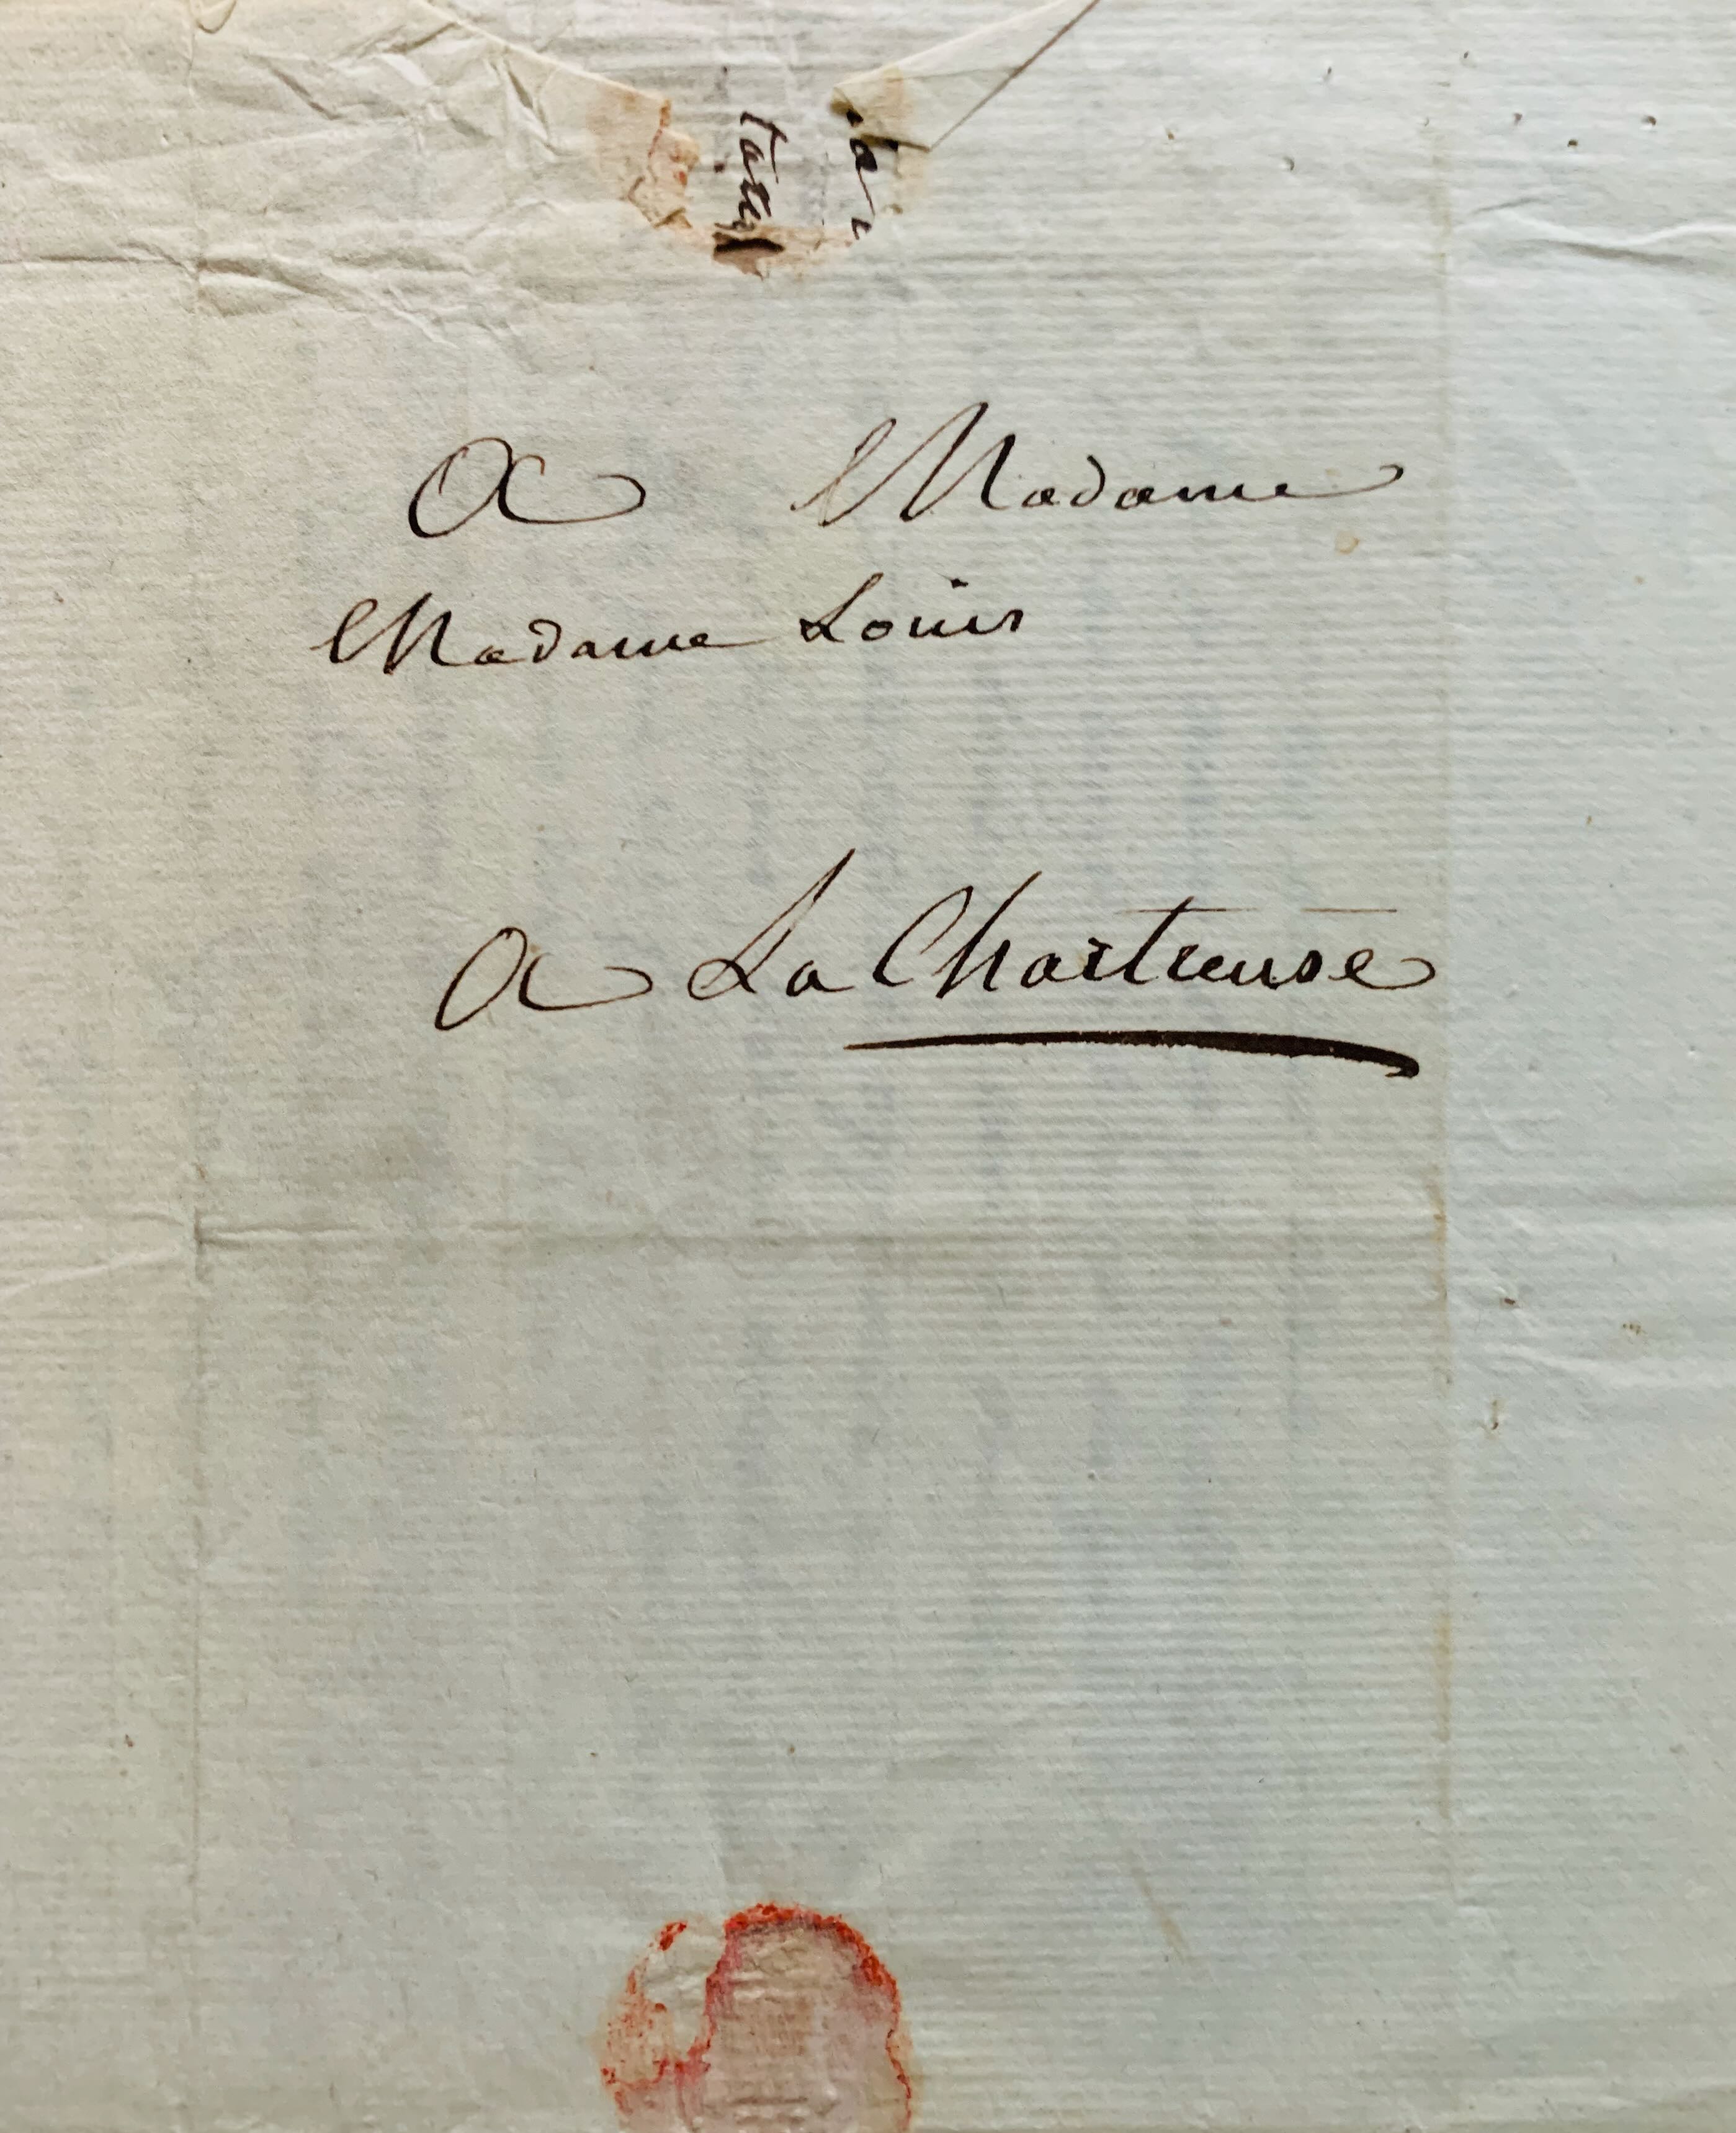 A Madame
Madame Loüis
A La Chartreuse